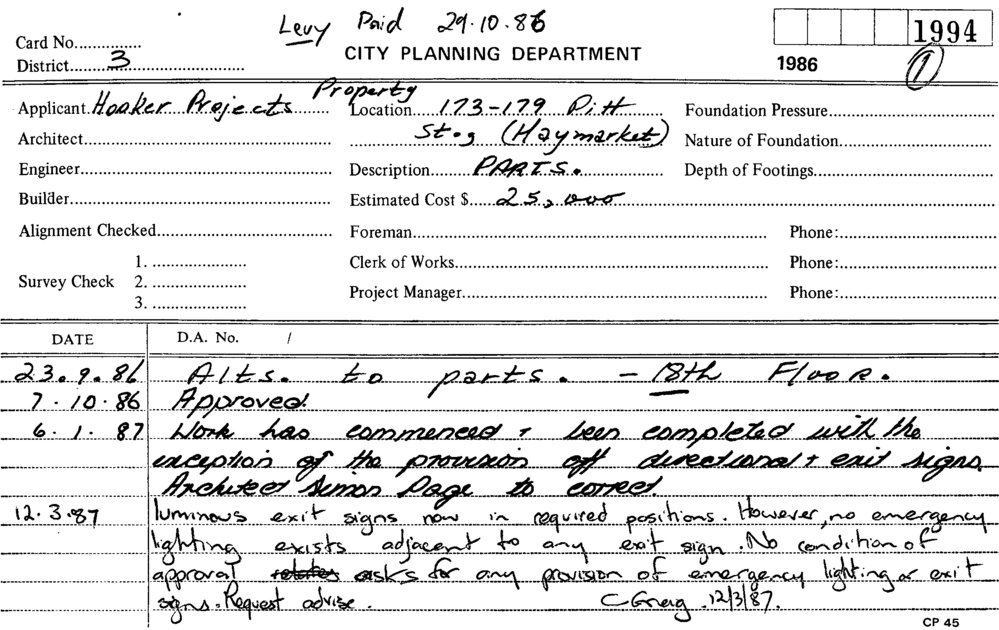 Levy Paid 29.10.86
1994
Card No...............
CITY PLANNING DEPARTMENT
District 3
1986
1
Applicant Hooker Projects Property
Location 173-179 Pitt
Foundation Pressure
Architect
St., (Haymarket)
Nature of Foundation
Engineer
Description PARTS.
Depth of Footings
Builder
Estimated Cost $ 25,000
Alignment Checked
Foreman
Phone:
1.
Clerk of Works
Phone:
Survey Check 2.
Project Manager
Phone:
3.
DATE D.A. No. /
23.9.86 Alts. to parts. - 18th Floor.
7.10.86 Approved.
6.1.87 Work has commenced + been completed with the
exception of the provision off directional + exit signs.
Architect Simon Page to correct.
12.3.87 luminous exit signs now in required positions. However, no emergency
lighting exists adjacent to any exit sign. No condition of
approval relates asks for any provision of emergency lighting or exit
signs. Request advise. C Greig. 12/3/87.
CP 45